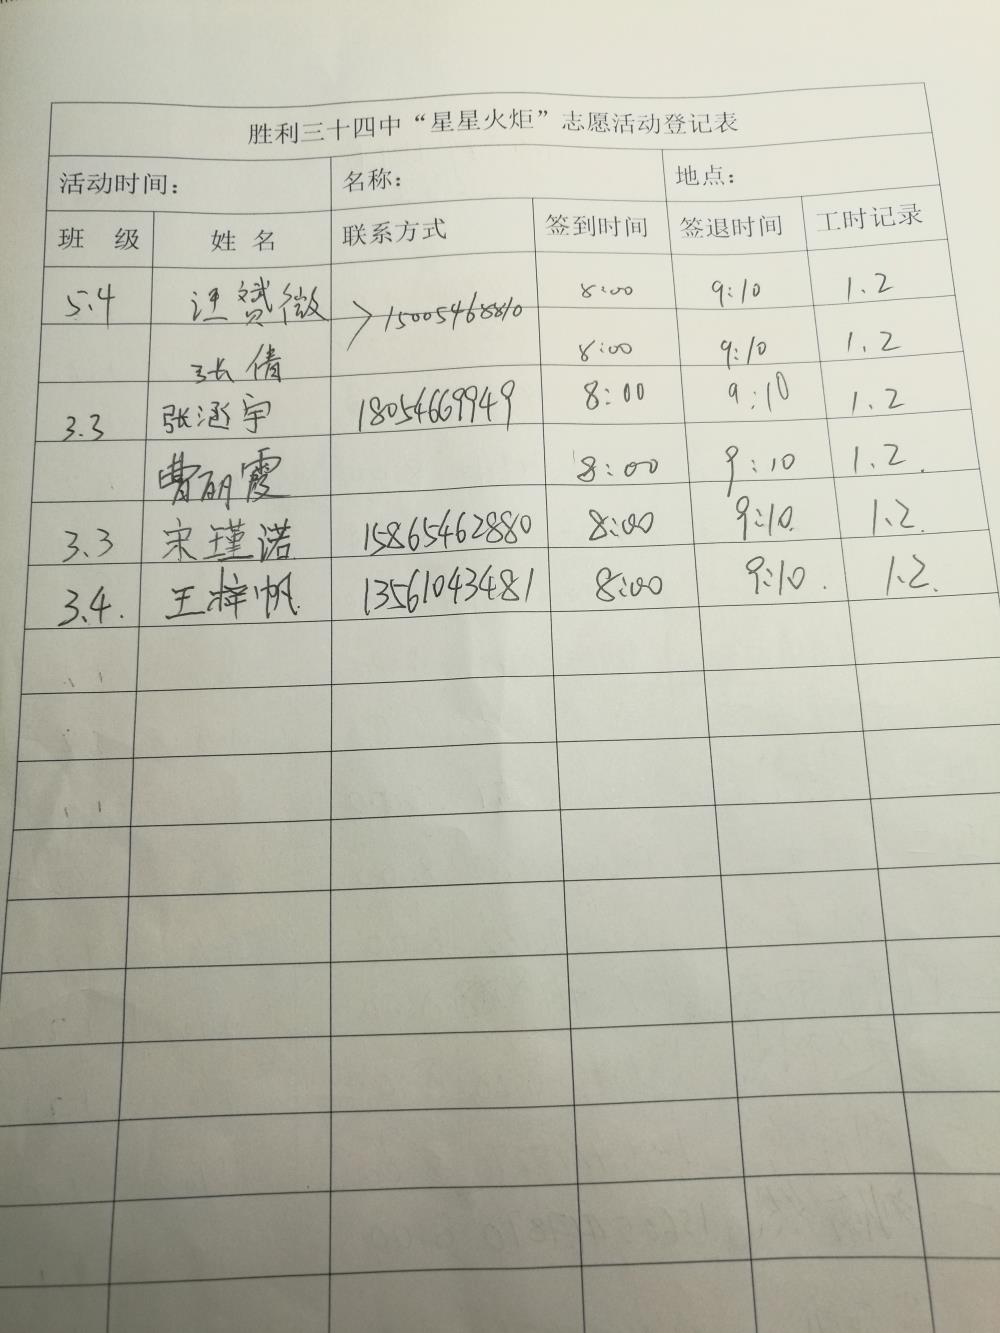 胜利三十四中“星星火炬”志愿活动登记表
活动时间： 名称： 地点：
班 级 姓 名 联系方式 签到时间 签退时间 工时记录
5.4 汪赟微 15005468810 8:00 9:10 1.2
张倩 8:00 9:10 1.2
3.3 张涵宇 18054669949 8:00 9:10 1.2
曹丽霞 8:00 9:10 1.2.
3.3 宋瑾诺 15865462880 8:00 9:10. 1.2.
3.4. 王梓帆 13561043481 8:00 9:10. 1.2.